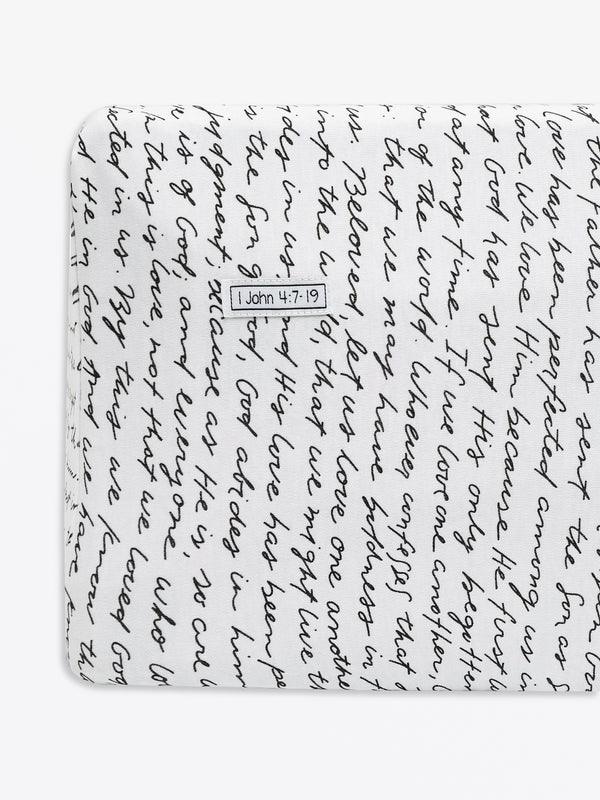 1 John 4:7-19
the Father has sent the Son as
love has been perfected among us in
love. We love Him because He first
at God has sent His only begotten
at any time. If we love one another,
of the world. Whoever confesses that
that we may have boldness in
us. Beloved, let us love one another
into the world, that we might live
des in us, and His love has been pe
s the Son of God, God abides in him
judgment; because as He is, so are
e is of God, and everyone who lo
this is love, not that we loved God
cted in us. By this we know tha
d He in God. And we have